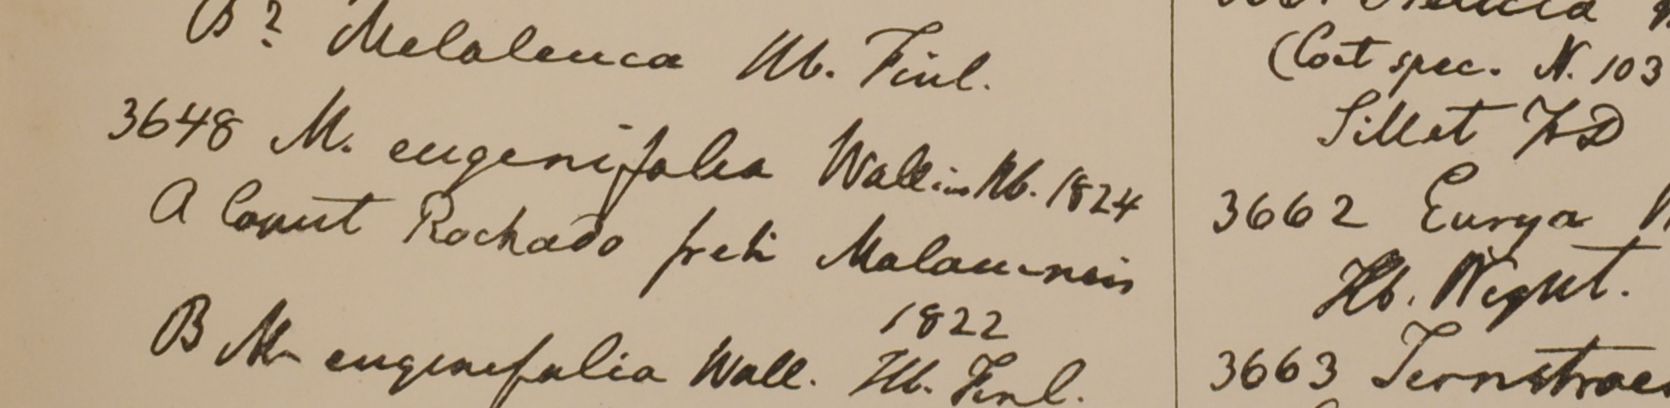 B? Melaleuca Hb. Finl.
3648 M. eugenifolia Wall in Hb. 1824
A Caput Rochado freti Malaccensis
1822
B M. eugenifolia Wall. Hb. Finl.
(Cat spec. N. 103
Sillet FD
3662 Eurya
Hb. Wight.
3663 Ternstroe